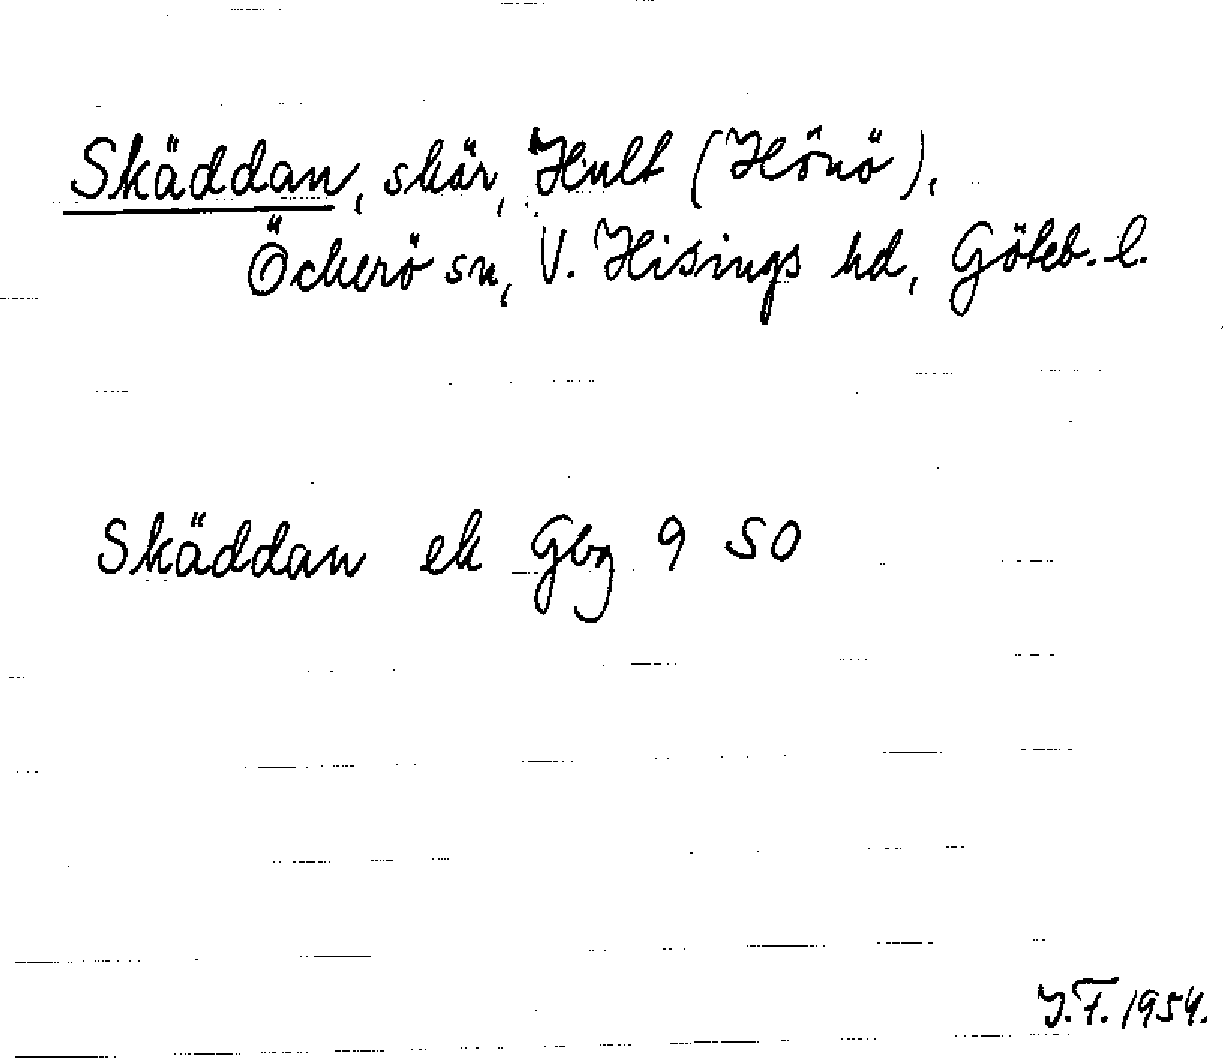 Skäddan, skär, Hult (Hönö),
Öckerö sn, V. Hisings hd, Göteb. l.
Skäddan ek Gbg 9 SO
J.F. 1954.